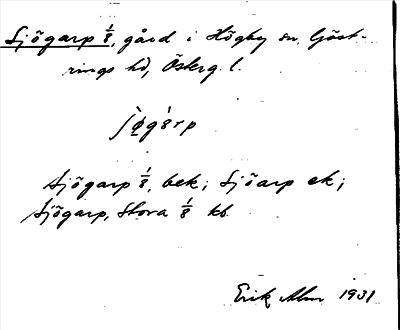 Sjögarp 1/8, gård i Högby sn, Göst-
rings hd, Österg. l.
Sjögarp 1/8, bek; Sjöarp ek;
Sjögarp, Stora 1/8 kb.
Erik Alm 1931